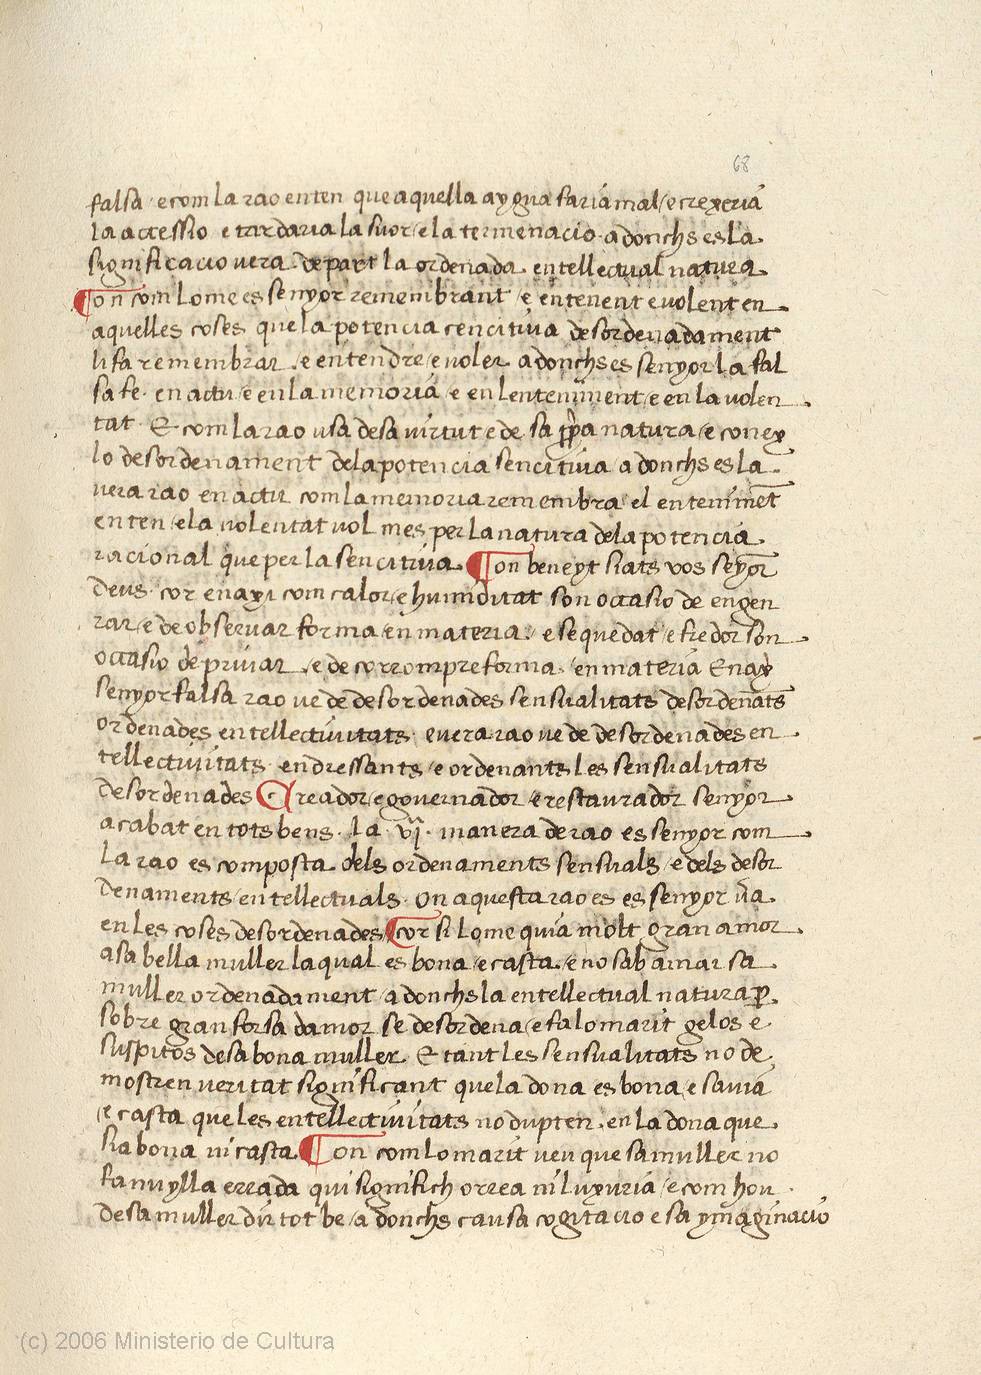 68
falsa · e com la rao enten que aquella aygua faria mal / e crexeria
la accessio e tardaria la suor / e la termenacio · adonchs es la
significacio vera de part la ordenada entellectual natura
¶ On com lome es senyor remembrant / e entenent e volent en
aquelles coses que la potencia cencitiva desordenadament
li fa remembrar / e entendre / e voler adonchs es senyor la fal
sa fe · en actu / e en la memoria / e en lenteniment / e en la volen
tat · E com la rao usa de sa virtut e de sa ꝓpa natura / e conex
lo desordenament de la potencia sencitiva adonchs es la
vera rao en actu com la memoria remembra / el entenimēt
enten / e la volentat vol mes per la natura de la potencia
racional que per la sencitiva ¶ On beneyt siats vos seyor̄
deus · cor enaxi com calor / e humiditat son occasio de engen
rar / e de observar forma / en materia · e sequedat / e fredor son
occasio de privar / e de corrompre forma · en materia Enax̄
senyor falsa rao ve de desordenades sensualitats desordenāts
ordenades entellectuitats · e vera rao ve de desordenades en
tellectuitats · endressants / e ordenants les sensualitats
desordenades Creador / e governador / e restaurador senyor
acabat en tots bens · la · vj̄ · manera de rao es senyor com
la rao es composta dels ordenaments sensuals / e dels desor
denaments / entellectuals · on aquesta rao es es senyor v̄a
en les coses desordenades ¶ cor si lome qui a molt gran amor
a sa bella muller la qual es bona / e casta / e no sab amar sa
muller ordenadament / adonchs la entellectual natura ꝑ
sobre gran forsa damor se desordena / e fa lo marit gelos e
suspitos de sa bona muller · E tant les sensualitats no de
mostren veritat significant que la dona es bona e savia
/ e casta que les entellectuitats no dupten · en la dona que
sia bona ni casta ¶ On com lo marit veu que sa muller no
fa nuylla errada qui significh orrea ni luxuria / e com hou
de sa muller dir tot be / adonchs causa cogitacio e sa ymaginacio
(c) 2006 Ministerio de Cultura